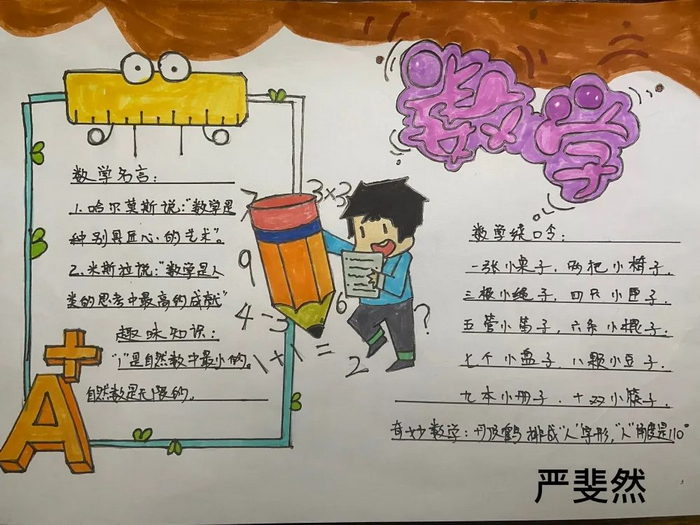 数学
数学名言:
1.哈尔莫斯说:"数学是
种别具匠心的艺术"。
2.米斯拉说:"数学是人
类的思考中最高的成就"
趣味知识:
"1"是自然数中最小的。
自然数是无限的。
A+
7
3×3
9
4-3
6
1+1=
2
?
数学绕口令:
一张小桌子,两把小椅子.
三根小绳子,四只小匣子.
五管小笛子,六条小棍子.
七个小盘子,八颗小豆子.
九本小册子,十双小筷子.
奇妙数学:丹顶鹤排成"人"字形,"人"角度是110°
严斐然